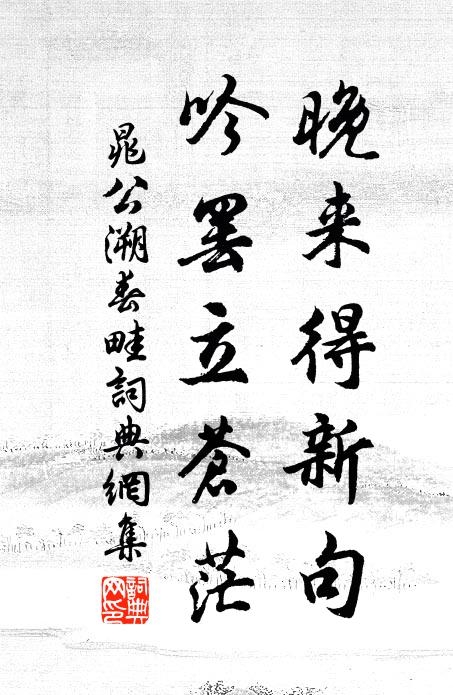 晚来得新句
吟罢立苍茫
晁公溯春畦詞典網集
詞典网印